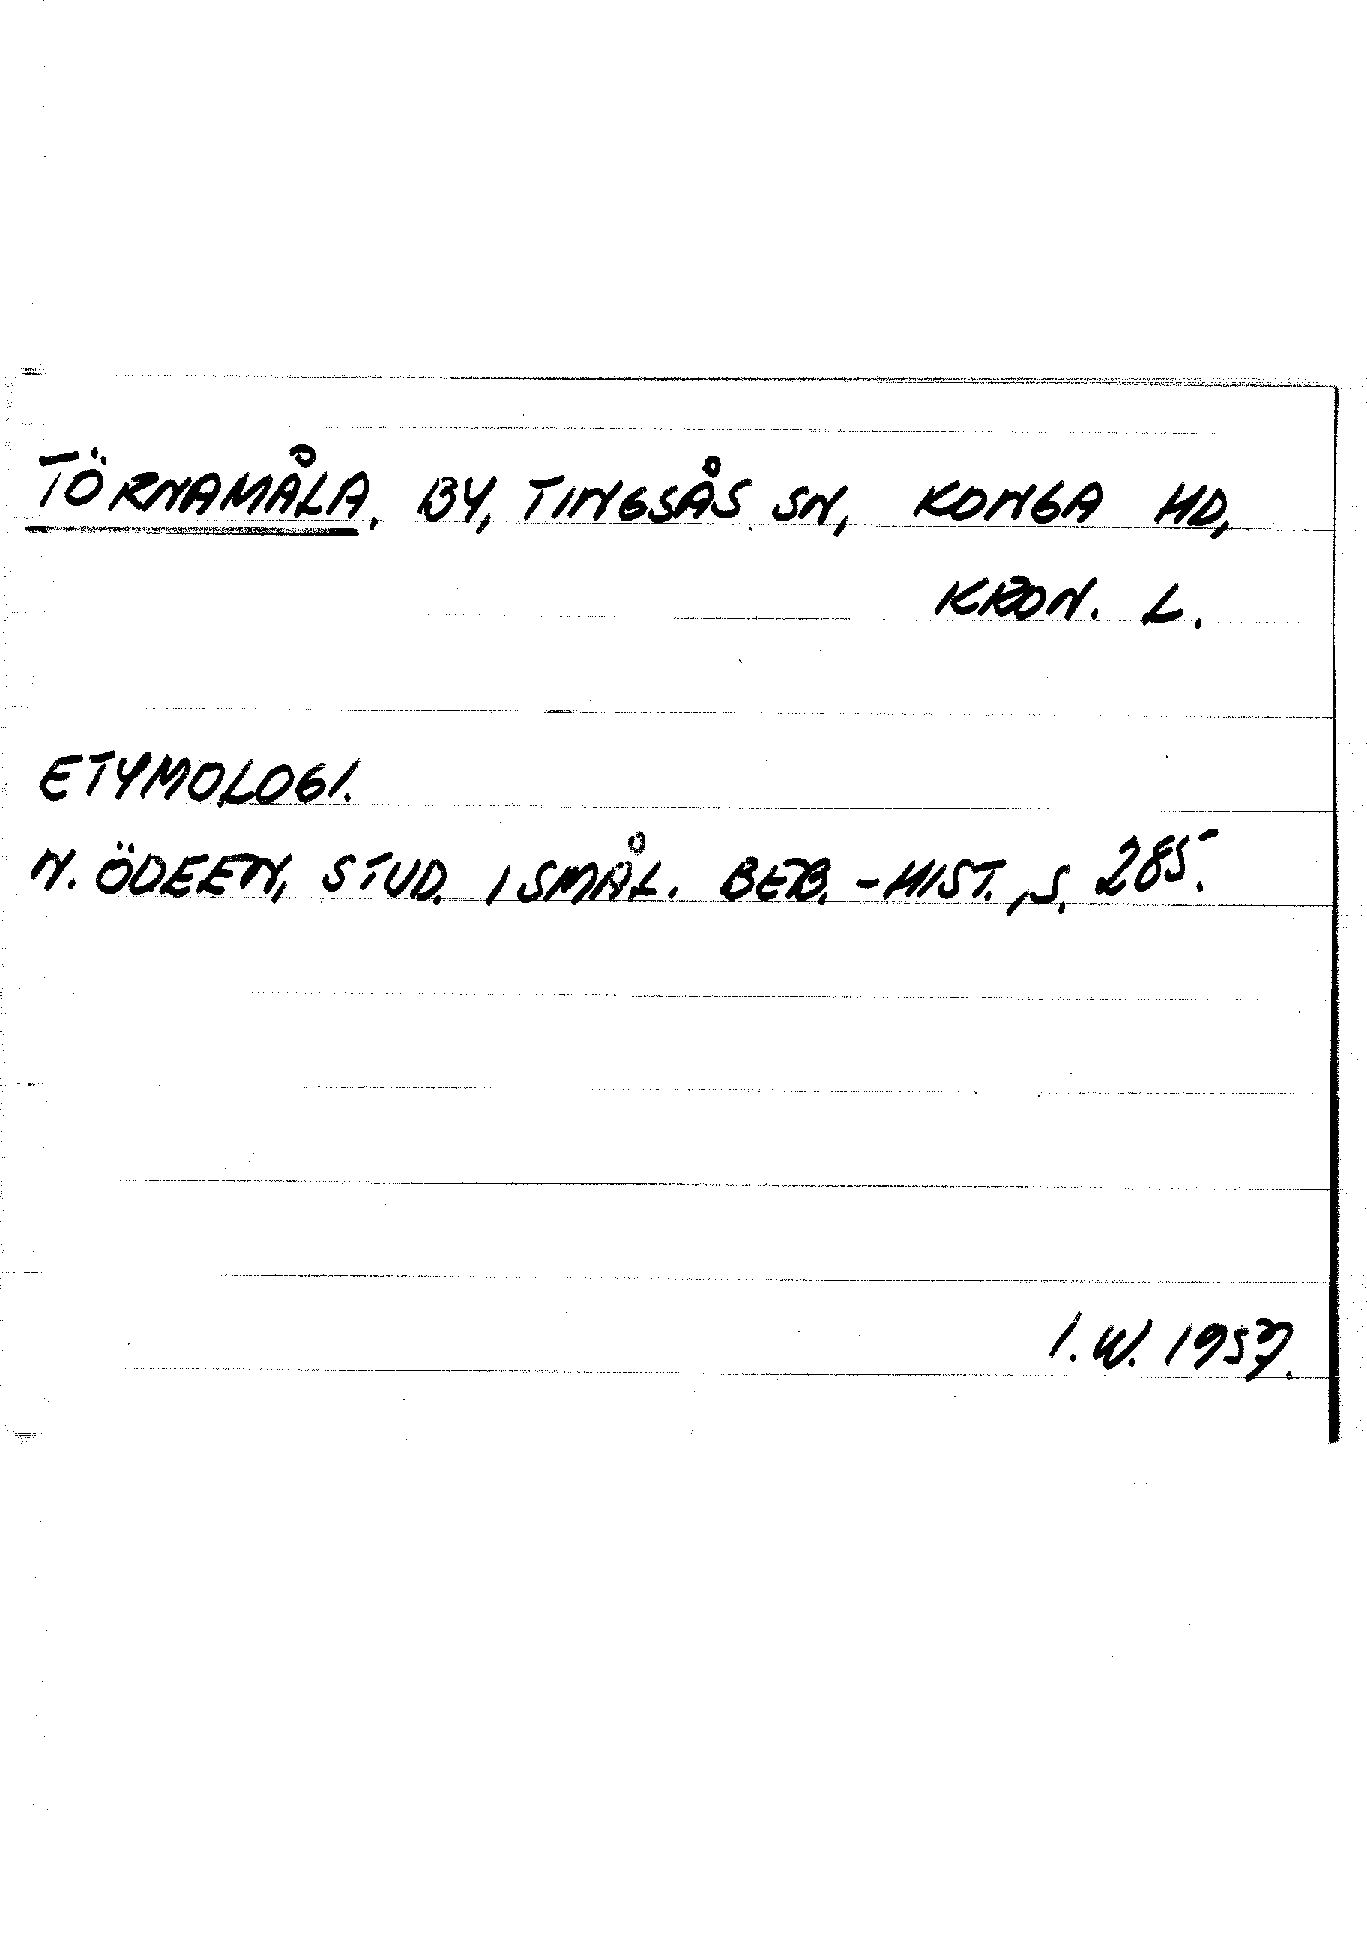 TÖRNAMÅLA, BY, TINGSÅS SN, KONGA HD,
KRON. L.
ETYMOLOGI.
N. ÖDEEN, STUD. I SMÅL. BEB.-HIST., S. 285.
I. W. 1957.